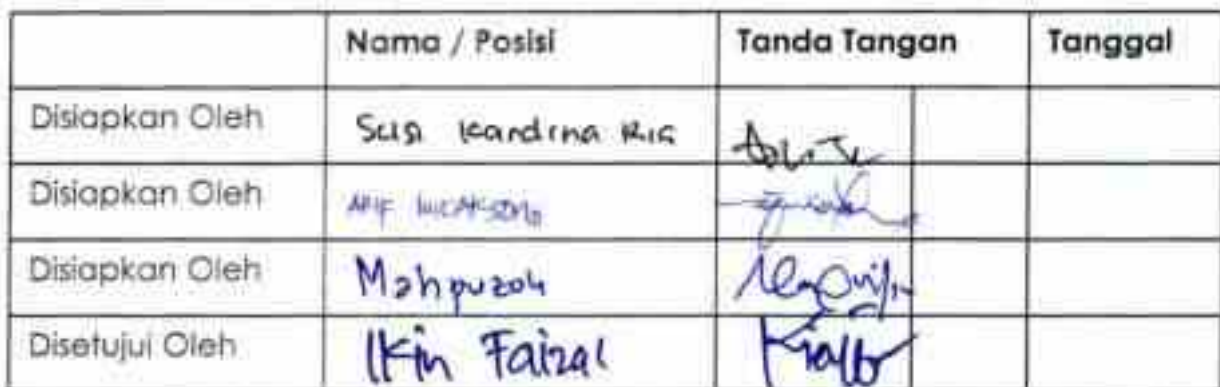 Nama / Posisi Tanda Tangan Tanggal
Disiapkan Oleh Susi Kardina
Disiapkan Oleh Arif Wicaksono
Disiapkan Oleh Mahpuzoh
Disetujui Oleh Ikin Faizal